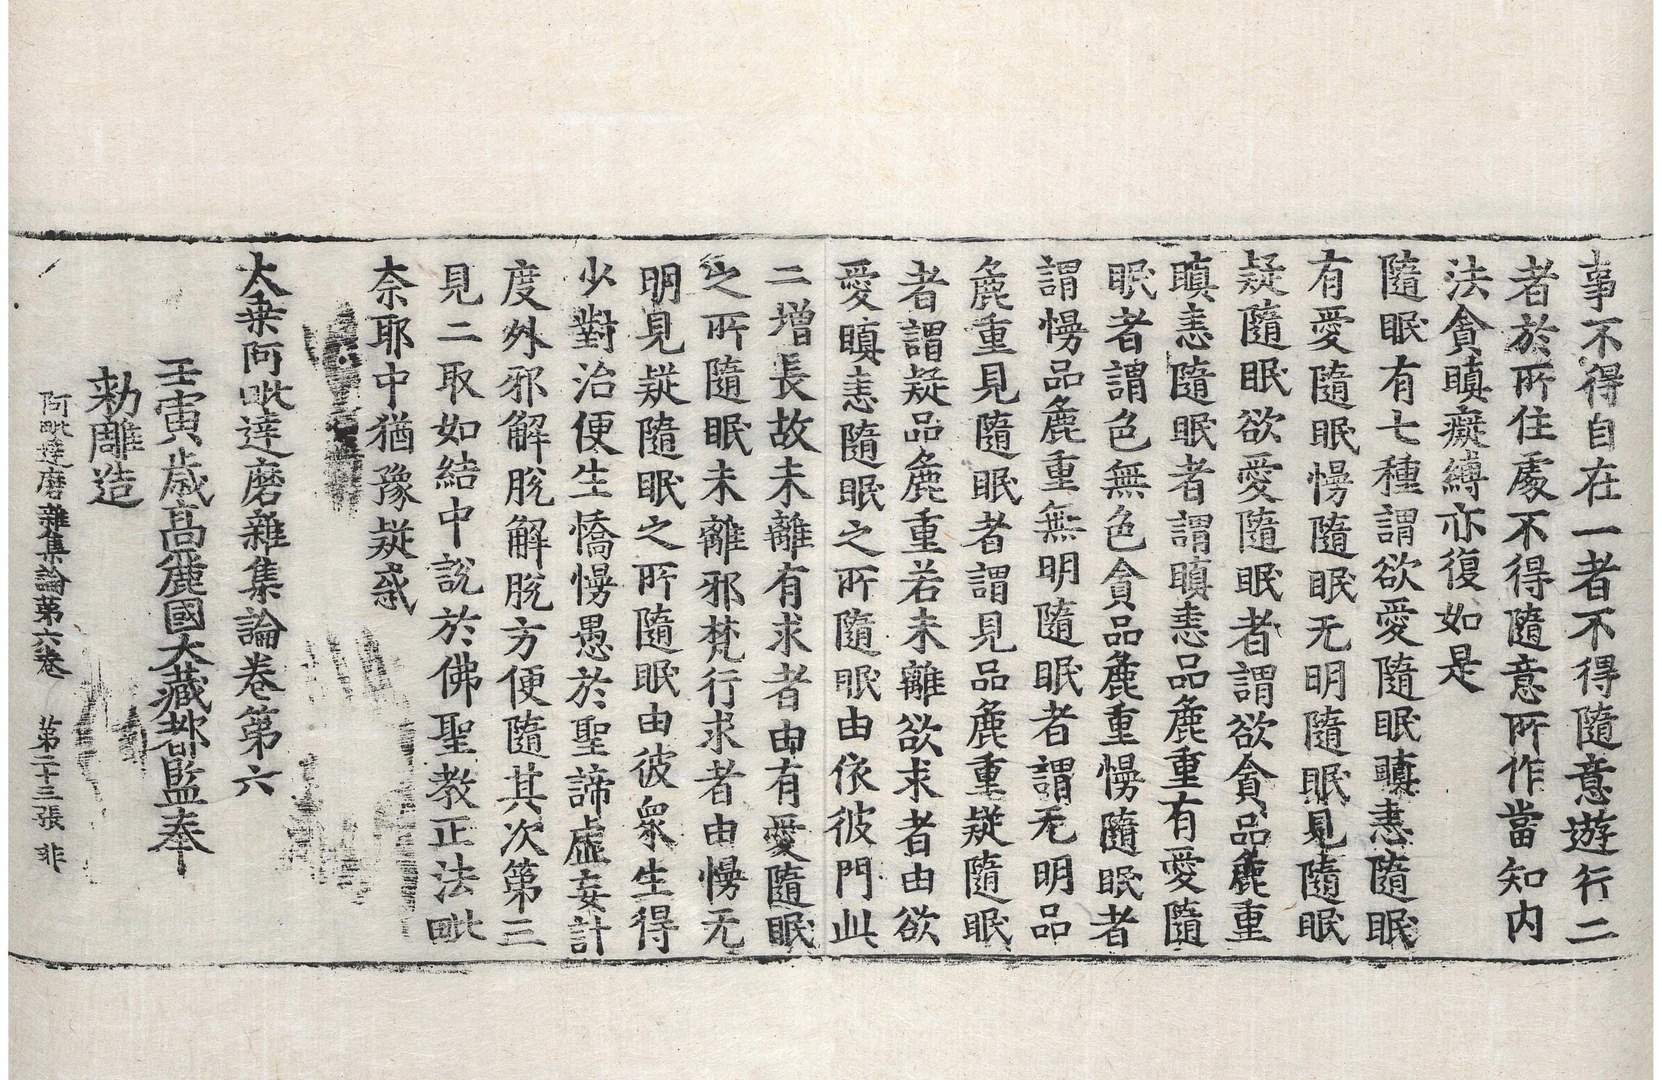 事不得自在一者不得隨意遊行二
者於所住處不得隨意所作當知內
法貪瞋癡縛亦復如是
隨眠有七種謂欲愛隨眠瞋恚隨眠
有愛隨眠慢隨眠无明隨眠見隨眠
疑隨眠欲愛隨眠者謂欲貪品麁重
瞋恚隨眠者謂瞋恚品麁重有愛隨
眠者謂色無色貪品麁重慢隨眠者
謂慢品麁重無明隨眠者謂无明品
麁重見隨眠者謂見品麁重疑隨眠
者謂疑品麁重若未離欲求者由欲
愛瞋恚隨眠之所隨眠由依彼門此
二增長故未離有求者由有愛隨眠
之所隨眠未離邪梵行求者由慢无
明見疑隨眠之所隨眠由彼衆生得
少對治便生憍慢愚於聖諦虛妄計
度外邪解脫解脫方便隨其次第三
見二取如結中說於佛聖教正法毗
奈耶中猶豫疑惑
大乗阿毗達磨雜集論卷第六
壬寅歲高麗國大藏都監奉
勑雕造
阿毗達磨雜集論第六卷 第二十三張 非